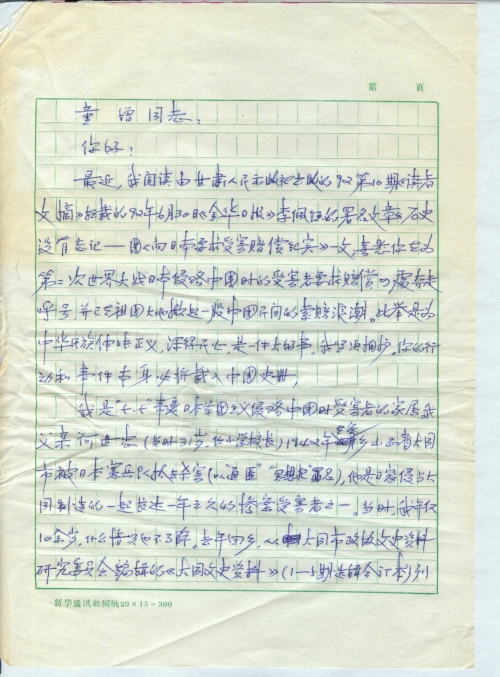 第 页
童增同志：
你好！
最近，我阅读由甘肃人民出版社出版的92第10期《读者
文摘》转载的92年6月30日《金华日报》李佩钰的署名文章《历史
没有忘记——图《向日本要求受害赔偿纪实》一文，喜悉你在为
第二次世界大战日本侵略中国时的受害者要求赔偿而奔走
呼号 并已在祖国大地掀起一股中国民间的索赔浪潮。此举是为
中华民族伸张正义，深得民心，是一件大好事，我坚决拥护。你的行
动和事件本身必将载入中国史册。
我是“七·七”事变日本帝国主义侵略中国时受害者的家属 我
父亲 (当时31岁，任小学校长) 1942年 山西省大同
市被日本宪兵队抓去杀害(以“通匪” 罪名)，他是日寇侵占大
同制造的一起长达一年之久的惨案受害者之一。当时，我年仅
10余岁，什么情况也不了解。去年回乡，从大同市政协文史资料
研究委员会编辑的《大同文史资料》(1—5期选辑合订本)列
新华通讯社稿纸20×15=300